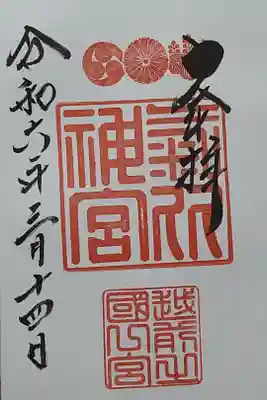 奉拝
氣比神宮
越前之國一宮
令和六年三月十四日